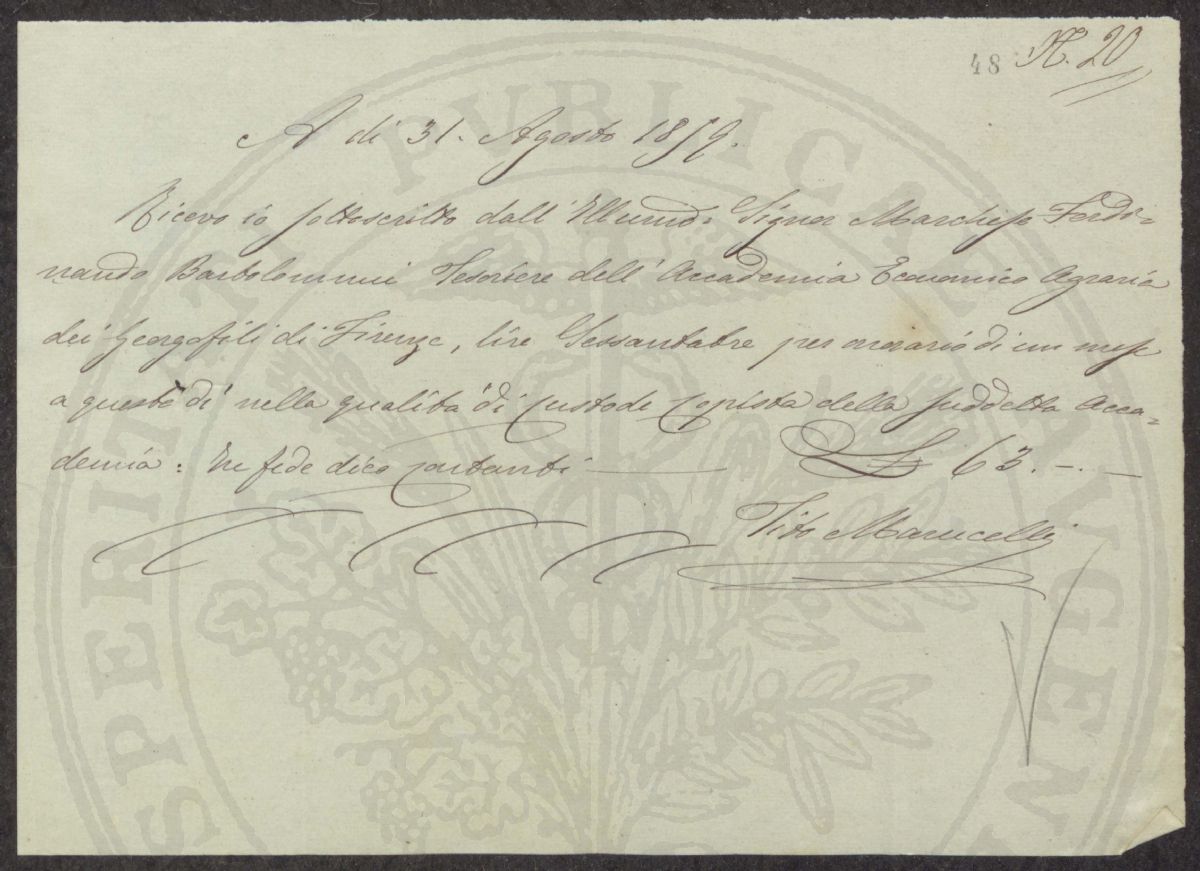 48 N. 20
A dì 31. Agosto 1859.
Ricevo io sottoscritto dall' Illumo. Signor Marchese Ferdi-
nando Bartolommei Tesoriere dell' Accademia Economico Agraria
dei Georgofili di Firenze, lire Sessantatre per onorario di un mese
a questo dì nella qualità di Custode Copista della suddetta Acca-
demia: In fede dico contanti — £ 63. -. —
Tito Marucelli
PROSPERITATI PVBLICAE AVGEN